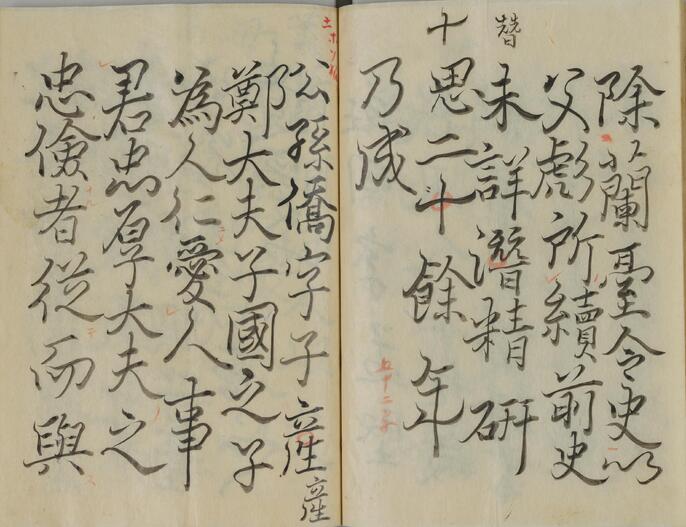 除蘭臺令史以
父彪所續前史
未詳潛精研
思二十餘年
乃成
十
朁
公孫僑字子產
鄭大夫子國之子
為人仁愛人事
君忠厚大夫之
忠儉者従而與
產
五十二字